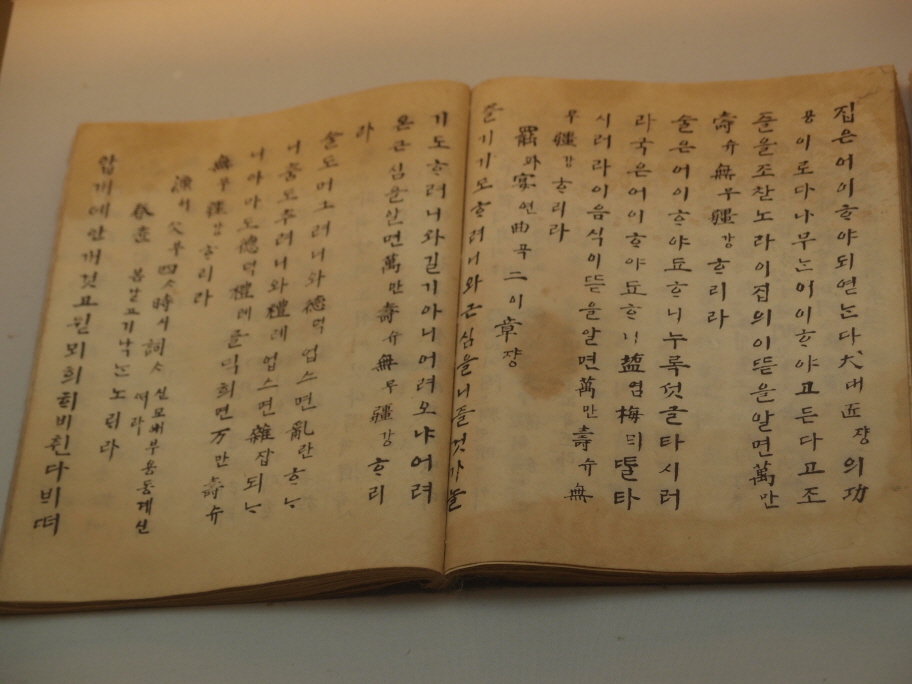 집은어이ᄒᆞ야되엳ᄂᆞᆫ다大대匠쟝의功
용이로다나무ᄂᆞᆫ어이ᄒᆞ야고든다고조
즐을조찬노라이집의이ᄠᅳᆮ을알면萬만
壽슈無무疆강ᄒᆞ리라
술은어이ᄒᆞ야됴ᄒᆞ니누록섯글타시러
라국은어이ᄒᆞ야됴ᄒᆞ니鹽염梅ᄆᆡᄐᆞᆯ타
시러라이음식이ᄠᅳᆮ을알면萬만壽슈無
무疆강ᄒᆞ리라
罷파宴연曲곡二이章쟝
즐기기도ᄒᆞ려니와근심을니즐것가놀
기도ᄒᆞ려니와길기아니어려오냐어려
온근심을알면萬만壽슈無무疆강ᄒᆞ리
라
술도머그려니와德덕업스면亂란ᄒᆞᄂᆞ
니춤도추려니와禮례업스면雜잡되ᄂᆞ
니아마도德덕禮례를딕희면万만壽슈
無무疆강ᄒᆞ리라
漁어父부四ᄉᆞ時시詞ᄉᆞ
압개예안개것고뒫뫼희ᄒᆡ비췬다ᄇᆡ떠